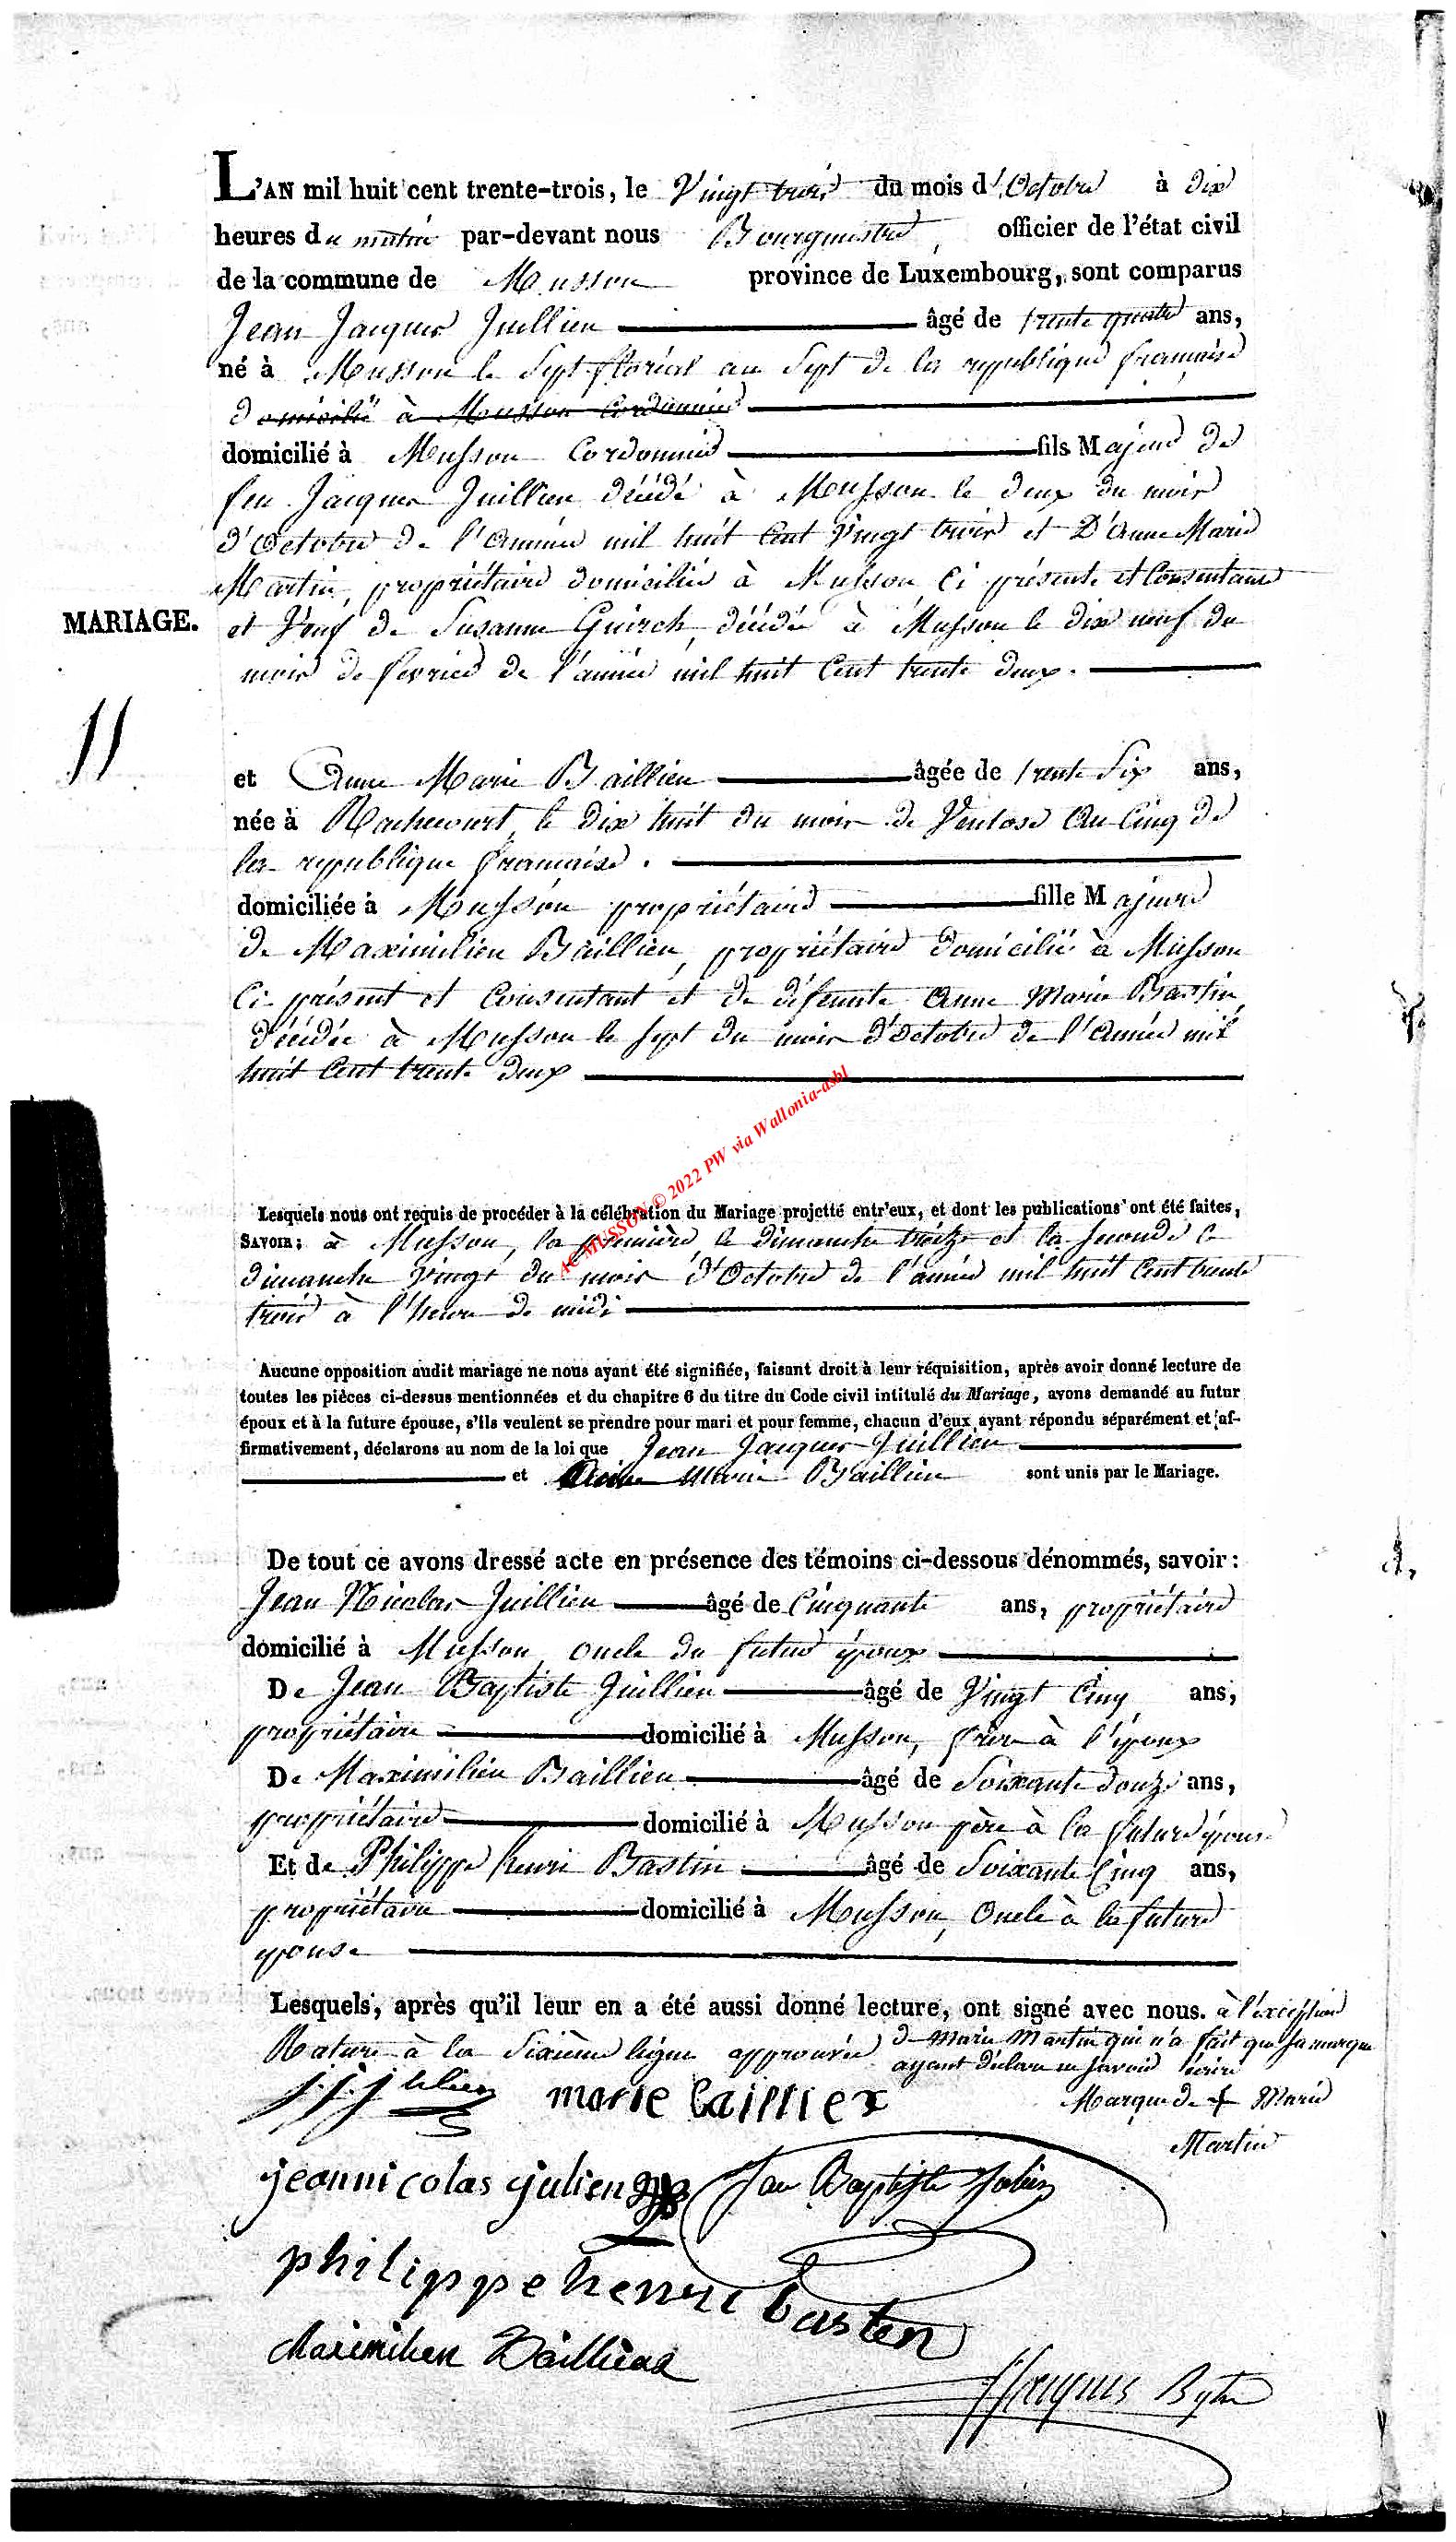 L'AN mil huit cent trente-trois, le Vingt trois du mois d'Octobre à dix
heures du matin par-devant nous Bourgmestre, officier de l'état civil
de la commune de Musson province de Luxembourg, sont comparus
Jean Jacques Juillien âgé de trente quatre ans,
né à Musson le Sept floréal an Sept de la republique française
domicilié à Musson Cordonnier
domicilié à Musson Cordonnier fils Majeur de
feu Jacques Juillien décédé à Musson le deux du mois
d'Octobre de l'Année mil huit Cent Vingt trois et D'Anne Marie
Martin, propriétaire domiciliée à Musson Ci présente et Consentante
MARIAGE.
et Veuf de Susanne Guirch, décédée à Musson le dix neuf du
mois de fevrier de l'année mil huit Cent trente deux.
11
et Anne Marie Baillieu âgée de trente Six ans,
née à Rachecourt, le dix huit du mois de Ventose An Cinq de
la republique française.
domiciliée à Musson propriétaire fille Majeure
de Maximilien Baillieu, propriétaire domicilié à Musson
Ci présent et Consentant et de défunte Anne Marie Bastin,
décédée à Musson le sept du mois d'Octobre de l'Année mil
huit Cent trente deux
Lesquels nous ont requis de procéder à la célébration du Mariage projetté entr'eux, et dont les publications ont été faites,
SAVOIR: à Musson, la première le dimanche treize et la seconde le
dimanche vingt du mois d'Octobre de l'année mil huit Cent trente
trois à l'heure de midi
AC MUSSON © 2022 PW via Wallonia-asbl
Aucune opposition audit mariage ne nous ayant été signifiée, faisant droit à leur réquisition, après avoir donné lecture de
toutes les pièces ci-dessus mentionnées et du chapitre 6 du titre du Code civil intitulé du Mariage, avons demandé au futur
époux et à la future épouse, s'ils veulent se prendre pour mari et pour femme, chacun d'eux ayant répondu séparément et af-
firmativement, déclarons au nom de la loi que Jean Jacques Juillien
et Anne Marie Baillieu sont unis par le Mariage.
De tout ce avons dressé acte en présence des témoins ci-dessous dénommés, savoir:
Jean Nicolas Juillien âgé de Cinquante ans, propriétaire
domicilié à Musson, oncle du futur époux
De Jean Baptiste Juillien âgé de Vingt Cinq ans,
propriétaire domicilié à Musson, frère à l'époux
De Maximilien Baillieu âgé de Soixante douze ans,
propriétaire domicilié à Musson père à la future épouse
Et de Philippe henri Bastin âgé de Soixante Cinq ans,
propriétaire domicilié à Musson, Oncle à la future
épouse
Lesquels, après qu'il leur en a été aussi donné lecture, ont signé avec nous. à l'exception
de Marie Martin qui n'a fait que sa marque
Rature à la Sixième ligne approuvée
ayant déclaré ne savoir écrire
j. j. julien marie bailliex
Marque de + Marie
Martin
jeannicolas julien Jean Baptiste Julien
philippe henri basten
Maximilien Baillieux